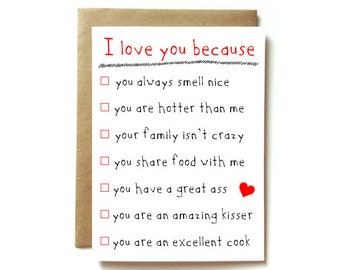 I love you because
you always smell nice
you are hotter than me
your family isn't crazy
you share food with me
you have a great ass
you are an amazing kisser
you are an excellent cook